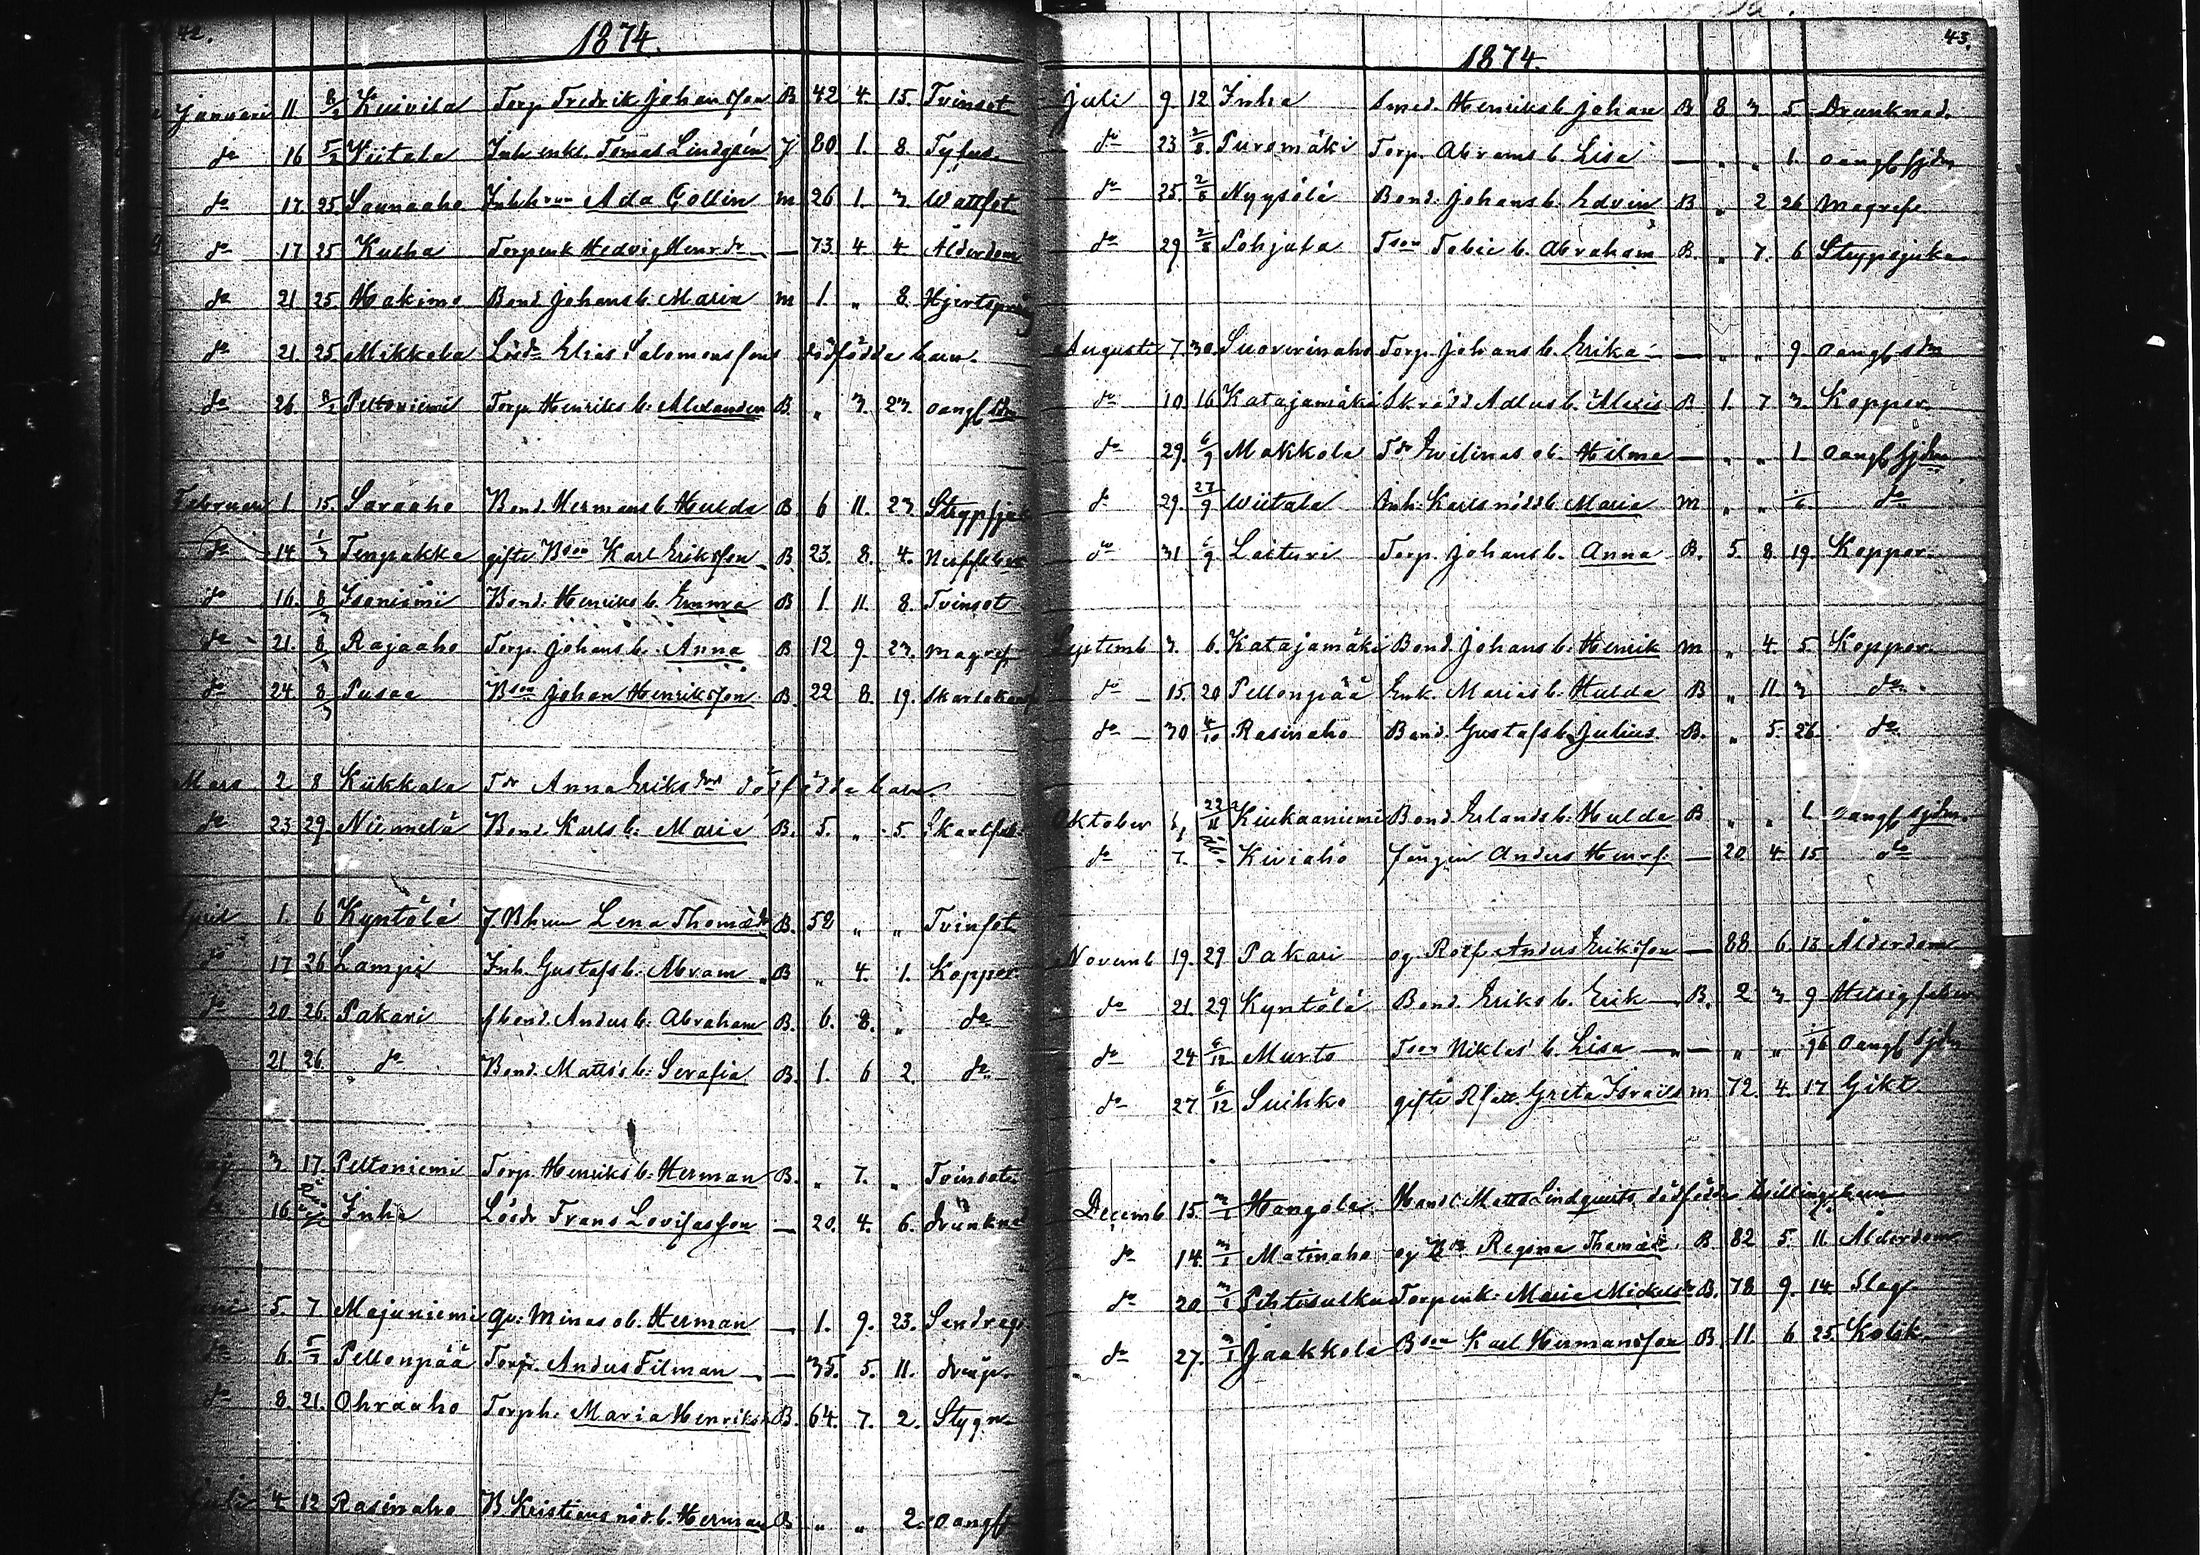 42.
1874.
Januari 11. 8/2 Kuivila Torp. Fredrik Johansson B. 42 4. 15. Tvinsot
do 16 5/2 Wiitala Inh. enkl. Tomas Lindgrén J 80 1. 8. Tyfus.
do 17. 25. Saunaaho Ada Collin m 26 1. 3. Wattsot.
do 17 25 Kusha Torpenk Hedvig Henr.dr — 73. 4 4. Ålderdom
do 21 25. Hakimo Bond. Johans b. Maria m 1. „ 8. Hjertspång
do 21. 25. Mikkola Lösdr Elias Salomonssons dödfödda barn.
do 26. 8/2 Peltoniemi Torp. Henriks b. Alexander B. „ 3. 23. oangf sjdm
Februari 1. 15. Saraaho Bond. Hermans b. Hulda B. 6 11. 23. Strypsjuk
do 14. 1/3 Tenpakka gifte Bson Karl Eriksson B. 23. 8. 4.
do 16. 8/3 Isoniemi Bond. Henriks b. Emma B 1. 11. 8. Tvinsot
do 21. 8/3 Rajaaho Torp. Johans b. Anna B 12 9. 23. magref
do 24. 8/3 Pusaa Bson Johan Henriksson B. 22 8. 19.
Mars 2 8 Kiikkala Tdr Anna Eriksdr dödfödda barn.
do 23 29. Niemelä Bond. Karls b. Maria B. 5. „ 5. Skarlfeb.
April 1. 6 Kyntölä f. Bhun Lena Thomædr B. 52 „ „ Tvinsot
do 17. 26 Lampi Inh. Gustafs b. Abram B. „ 4. 1. Koppor
do 20 26. Pakari f bond. Anders b. Abraham B. 6. 8. „ do
21 26. do Bond. Matts's b. Serafia B. 1. 6 2. do
Maj 3 17. Peltoniemi Torp. Henriks b. Herman B. „ 7. „ Tvinsot
do 16 Inha Lösdr Frans Lovisasson — 20. 4. 6. drunknad
Juni 5. 7 Majaniemi Qv. Minas ob. Herman — 1. 9. 23.
do 6. 5/7 Pellonpää Torp. Anders Filman — 35. 5. 11. dråp.
do 8. 21. Ohraaho Torph. Maria Henriksdr B. 64. 7. 2. Stygn
Juli 4 12 Rasinaho B Kristians nöd. b. Herman B „ „ 2. oangf
43.
1874.
Juli 9. 12 Inha Smed. Henriks b. Johan B 8 3 5 Drunknad.
do 23 2/8 Puromäki Torp. Abrams b. Lisa — „ „ 1. oangf sjdm
do 25. 2/8 Nyysölä Bond. Johans b. Edvin B „ 2 26 Magref.
do 29. 2/8 Lohjala Tson Tobie b. Abraham B. „ 7. 6 Strypsjuka
Augusti 7. 30. Suoverinaho Torp. Johans b. Erika — „ „ 9. oangf sdm
do 10. 16 Katajamäki Skrädd Adlus b. Alexis B 1. 7 3. Koppor.
do 29. 6/9 Makkola Tdr Evilinas ob. Hilma — „ „ 1. oangf sjdm
do 29. 27/9 Wiitala Inh. Karls nödd b. Maria m „ „ do
do 31 6/9 Laituri Torp. Johans b. Anna B. 5. 8. 19. Koppor.
Septemb 3. 6. Katajamäki Bond. Johans b. Henrik m „ 4. 5. Koppor.
do 15. 20 Pellonpää Enk. Marias b. Hulda B „ 11. 3 do
do 30 4/10 Rasinaho Bond. Gustafs b. Julius B. „ 5. 26. do
Oktober 22/11 Kiukaaniemi Bond. Erlands b. Hulda B „ „ 1. oangf sjdm.
do 7. Kiviaho Jungin Anders Henrs. — 20 4 15 do
Novemb 19. 29 Pakari og. Rotf. Anders Eriksson — 88 6 13 Ålderdom
do 21. 29 Kyntölä Bond. Eriks b. Erik — B. 2 3 9
do 24 6/12 Murto Tson Niklas' b. Lisa — „ „ oangf sjdm
do 27 6/12 Suihko gifte Greta Israels m 72. 4. 17 Gikt
Decemb 15. 3/1 Hangola Handl. Matts Lindquists dödfödda tvillingebarn
do 14. 3/1 Matinaho og Regina Thomædr B. 82 5. 11. Ålderdom
do 20. 3/1 Pihtisulku Torpenk. Maria Mickelsdr B. 78 9. 14. Slag
do 27. 3/1 Jaakkola Bson Karl Hermansson B. 11. 6 25 Kolik